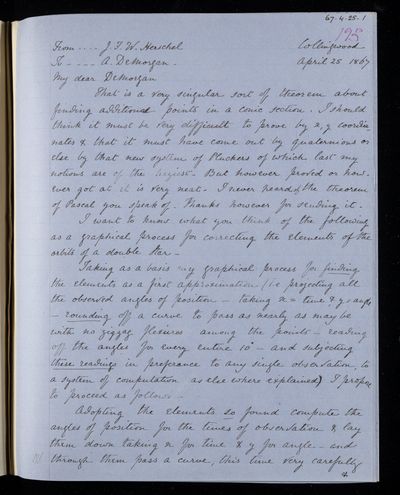 67.4.25.1
195
From .... J. F. W. Herschel
Collingwood
To ---- A. DeMorgan -
April 25 1867
My dear DeMorgan
That is a very singular sort of theorem about
finding additional points in a conic section. I should
think it must be very difficult to prove by x, y coordi-
nates & that it must have come out by quaternions or
else by that new system of Pluckers of which last my
notions are of the haziest. But however proved or how-
ever got at it is very neat. I never heard of the theorem
of Pascal you speak of. Thanks however for sending it.
I want to know what you think of the following
as a graphical process for correcting the elements of the
orbit of a double star -
Taking as a basis my graphical process for finding
the elements as a first approximation (i.e. projecting all
the observed angles of position - taking x = time & y = angle
- rounding off a curve to pass as nearly as may be
with no zigzag flexures among the points - reading
off the angles for every entire 10° - and subjecting
these readings in preference to any single observation, to
a system of computation as elsewhere explained) I propose
to proceed as follows -
Adopting the elements so found compute the
angles of position for the times of observation & lay
them down taking x for time & y for angle - and
through them pass a curve, this time very carefully